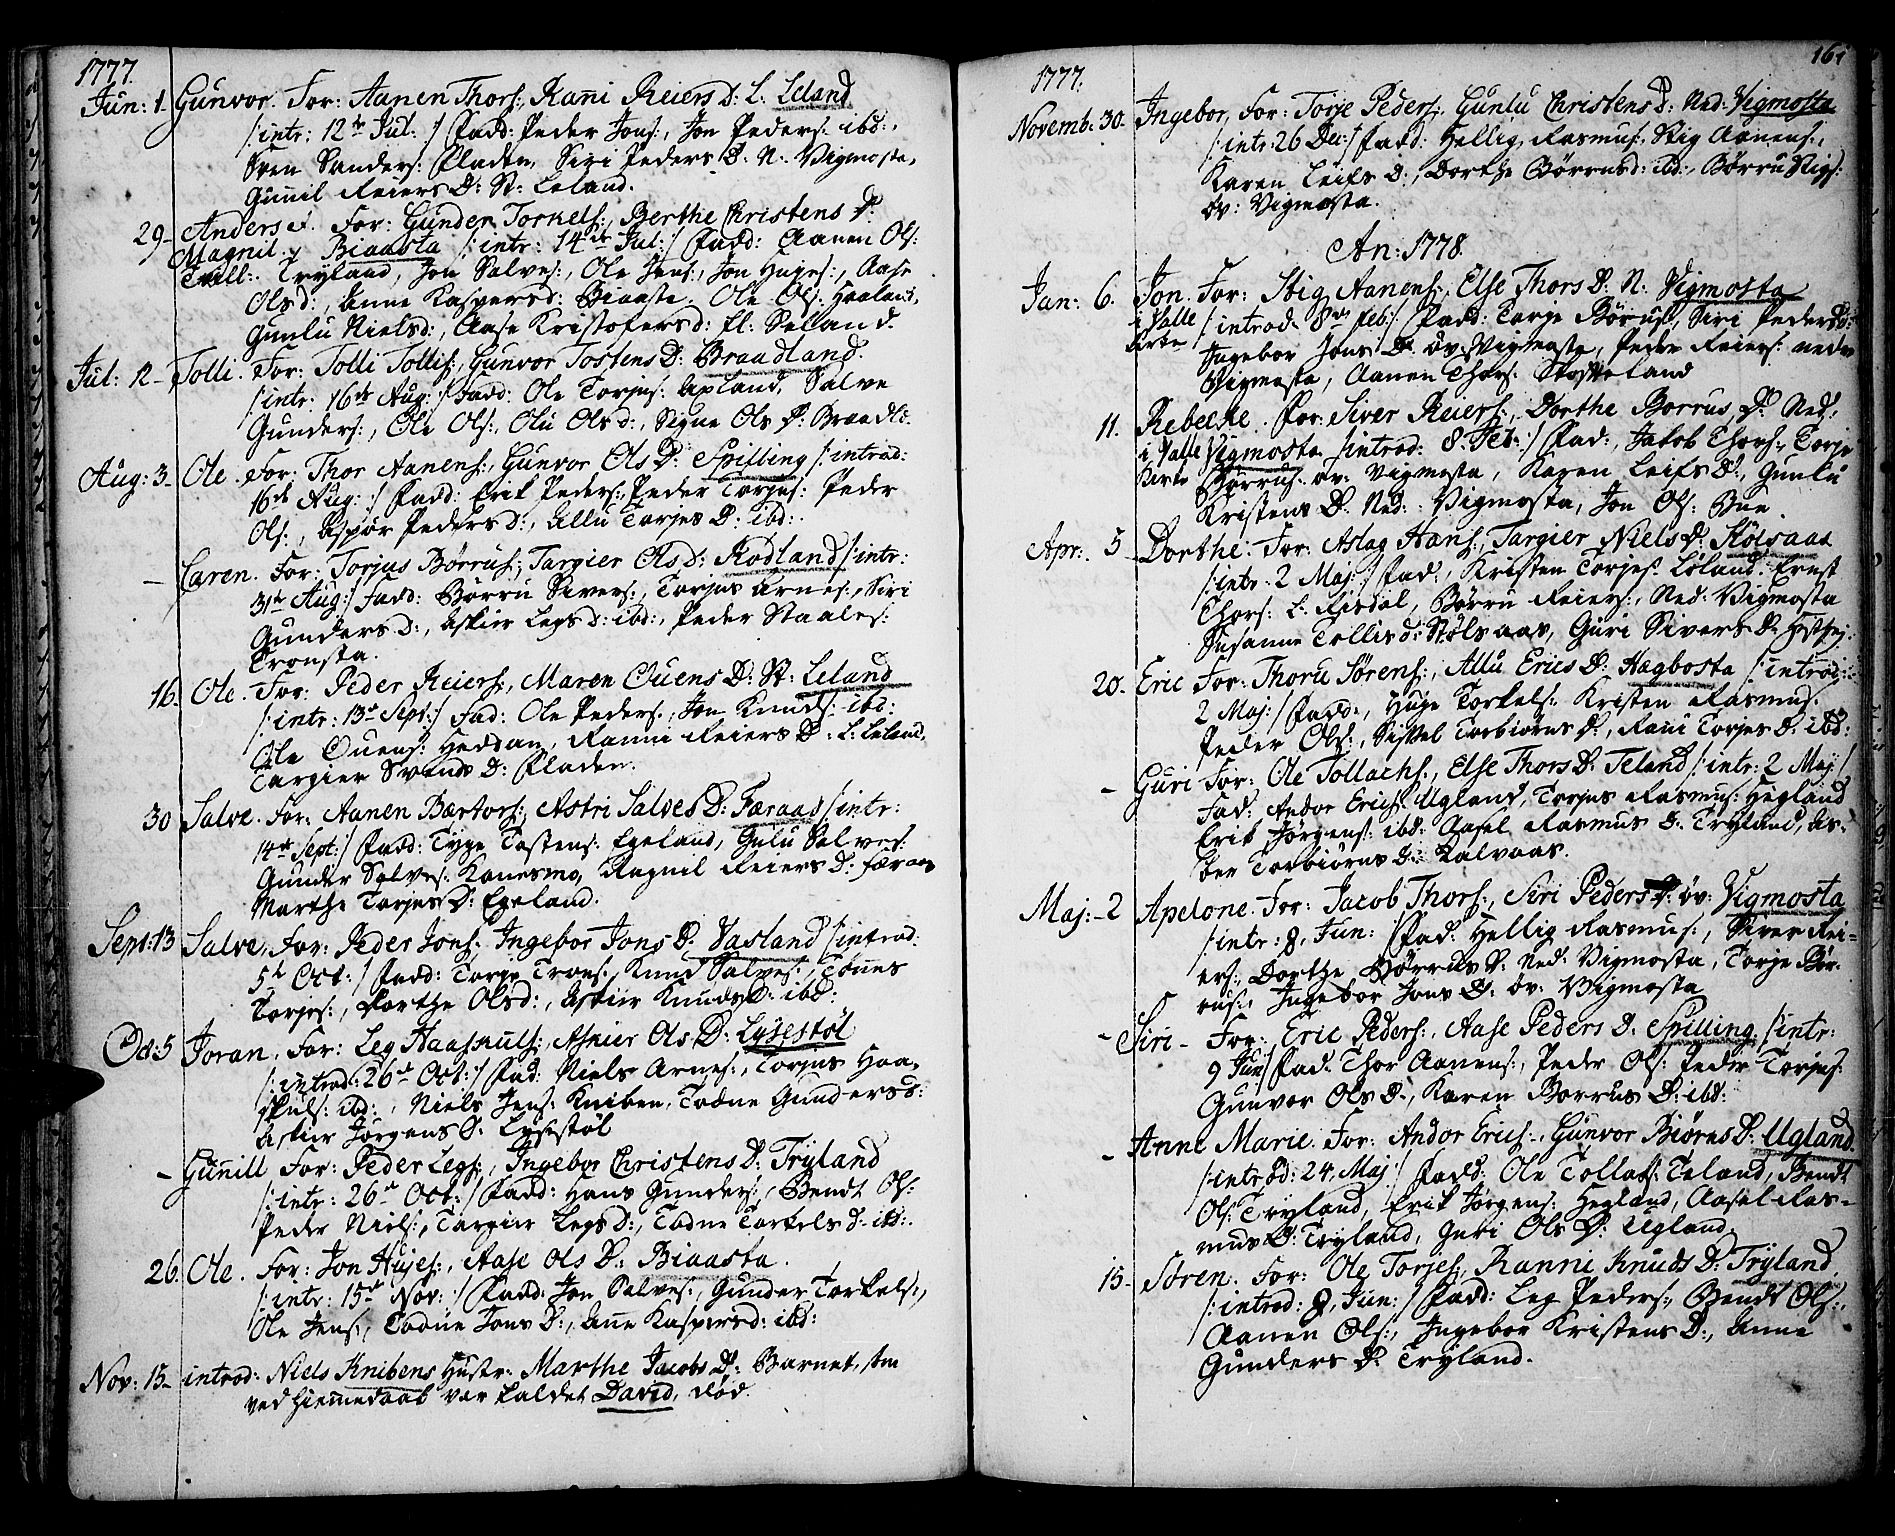 1777.
Jun: 1. Gunvor. For: Aanen Thors:, Rani Reiers D: L. Leland
/: intr: 12te Jul: :/ Fadd: Peder Jons:, Jon Peders: ibd:,
Sven Sanders: Fladen, Siri Peders D: N. Vigmosta,
Gunil Reiers D: St: Leland.
29- Anders et For: Gunder Torkels:, Berthe Christens D:
Magnil Biaasta /: intr: 14de Jul: :/ Fadd: Aanen Ols:
Tvill: Tryland, Jon Salves:, Ole Jens:, Jon Hujes:, Aase
Ols d:, Anne Kaspers d: Biaaste, Ole Ols: Haaland,
Gunlu Niels d:, Aase Kristofers d: Seland.
Jul: 12- Tolli. For: Tolli Tollis:, Gunvor Tostens D: Braadland.
/: intr: 16de Aug: :/ Fadd: Ole Torjus: Apland, Salve
Gunders:, Ole Ols:, Olu Ols d:, Signe Ols D: Braadld:
Aug: 3- Ole. For: Thor Aanens:, Gunvor Ols D: Spilling /: introd:
16de Aug: :/ Fadd: Erik Peders:, Peder Torjus: Peder
Ols:, Aspor Peders d:, Allu Torjes D: ibd:.
- Caren. For: Torjus Børrus:, Targier Ols D: Rodland /: intr:
31te Aug: :/ Fadd: Børru Sivers:, Torjus Arnes:, Siri
Gunders d:, Askier Legs d: ibd:, Peder Staales:
Tronsta.
16- Ole. For: Peder Reiers:, Maren Ouens D: St: Leland
/: intr: 13de Sept: :/ Fad: Ole Peders:, Jon Knuds: ibd:
Ole Ouens: Heddan, Ranni Reiers D: L: Leland,
Targier Svends D: Fladen.
30 Salve. For: Aanen Bertors:, Astri Salves D: Færaas /: intr:
14de Sept: :/ Fadd: Tyge Tostens: Egeland, Gulu Salves:
Gunder Salves: Konesmo, Ragnil Reiers D: Færaas
Marthe Torjes D: Egeland.
Sept: 13 Salve, For: Peder Jons:, Ingebor Jons D: Vasland /: introd:
5te Oct: :/ Fadd: Torje Trons:, Knud Salves:, Tønnes
Torjes:, Dorthe Ols d:, Askier Knuds D: ibd:
Oct: 5 Joran. For: Leg Haaskuls:, Askier Ols D: Lysestøl
/: introd: 26de Oct: :/ Fad: Niels Arnes:, Torjus Haa-
skuls: ibd:, Niels Jens: Kniben, Todne Gunders d:
Askier Jørgens D: Lysestøl
- Gunill For: Peder Legs:, Ingebor Christens D: Tryland
/: intr: 26de Oct: :/ Fadd: Hans Gunders:, Bendt Ols:
Peder Niels:, Targier Legs D:, Todne Torkels d: ibd:.
26. Ole. For: Jon Hujes:, Aase Ols D: Biaasta.
/: intr: 15de Nov: :/ Fadd: Jon Salves:, Gunder Torkels:,
Ole Jens:, Todne Jons D:, Ane Kaspers d: ibd:
Nov: 15- introd: Niels Knibens Hustr: Marthe Jacobs D: Barnet, som
ved Hiemmedaab var kaldet David, død.
161
1777.
Novemb: 30- Ingebor, For: Torje Peders:, Gunlu Christens D: Ned: Vigmosta
/: intr: 26 Dec: :/ Fadd: Hellig Rasmus:, Stig Aanens:,
Karen Leifs D:, Dorthe Børrus d: ibd:, Børru Stigs:
øv: Vigmosta.
An: 1778.
Jan: 6. Jon. For: Stig Aanens:, Else Thors D: N. Vigmosta
i Valle /: introd: 8de Feb: :/ Fadd: Torje Børus:, Siri Peders D:
Kirke Ingebor Jons D: øv: Vigmosta, Peder Reiers: nedr
Vigmosta, Aanen Thors:
11. Rebecke. For: Siver Reiers:, Dorthe Borrus D: Ned:
i Valle Vigmosta /: introd: 8. Feb: :/ Fad:, Jakob Thors:, Torje
Kirke Børrus: øv: Vigmosta, Karen Leifs D:, Gunlu
Kristens D: Ned: Vigmosta, Jon Ols: Bue.
Apr: 5- Dorthe. For: Aslag Hans:, Targier Niels D: Stølsaas
/: intr: 2 Maj: :/ Fad:, Kristen Torjes: Løland, Ernst
Thors: L: Risdal, Børru Reiers:, Ned: Vigmosta
Susanne Tollis d: Stølsaas, Guri Sivers D:
20- Eric For: Thoru Sørens:, Allu Erics D: Hagbosta /: introd:
2 Maj: :/ Fadd:, Huge Torkels:, Kristen Rasmus:
Peder Ols:, Sissel Torbiørns D:, Rani Torjes D: ibd:
- Guri For: Ole Tollachs:, Else Thors D: Teland /: intr: 2 Maj: :/
Fad: Andor Erics: Ugland, Torjus Rasmus: Hegland
Erik Jørgens: ibd: Aasel Rasmus D: Tryland, As-
ber Torbiørns D: Kalvaas.
Maj: - 2 Apelone. For: Jacob Thors:, Siri Peders D: øv: Vigmosta
/: intr: 8. Jun: :/ Fad: Hellig Rasmus:, Siver Rei-
ers: Dorthe Børrus D: Ned: Vigmosta, Torje Bør-
rus:, Ingebor Jons D: øv: Vigmosta
- Siri - For: Eric Peders:, Aase Peders D: Spilling /: intr:
9 Jun: :/ Fad: Thor Aanens:, Peder Ols: Peder Torjus:
Gunvor Ols D:, Karen Borrus D: ibd:
- Anne Marie. For: Andor Erics:, Gunvor Biørns D: Ugland.
/: introd: 24. Maj: :/ Fadd: Ole Tollafs: Teland, Bendt
Ols: Tryland, Erik Jørgens: Hegland, Aasel Ras-
mus D: Tryland, Guri Ols D: Ugland.
15- Søren. For: Ole Torjes:, Ranni Knuds D: Tryland.
/: introd: 8. Jun: :/ Fadd: Leg Peders:, Bendt Ols:,
Aanen Ols:, Ingebor Kristens D:, Anne
Gunders D: Tryland.